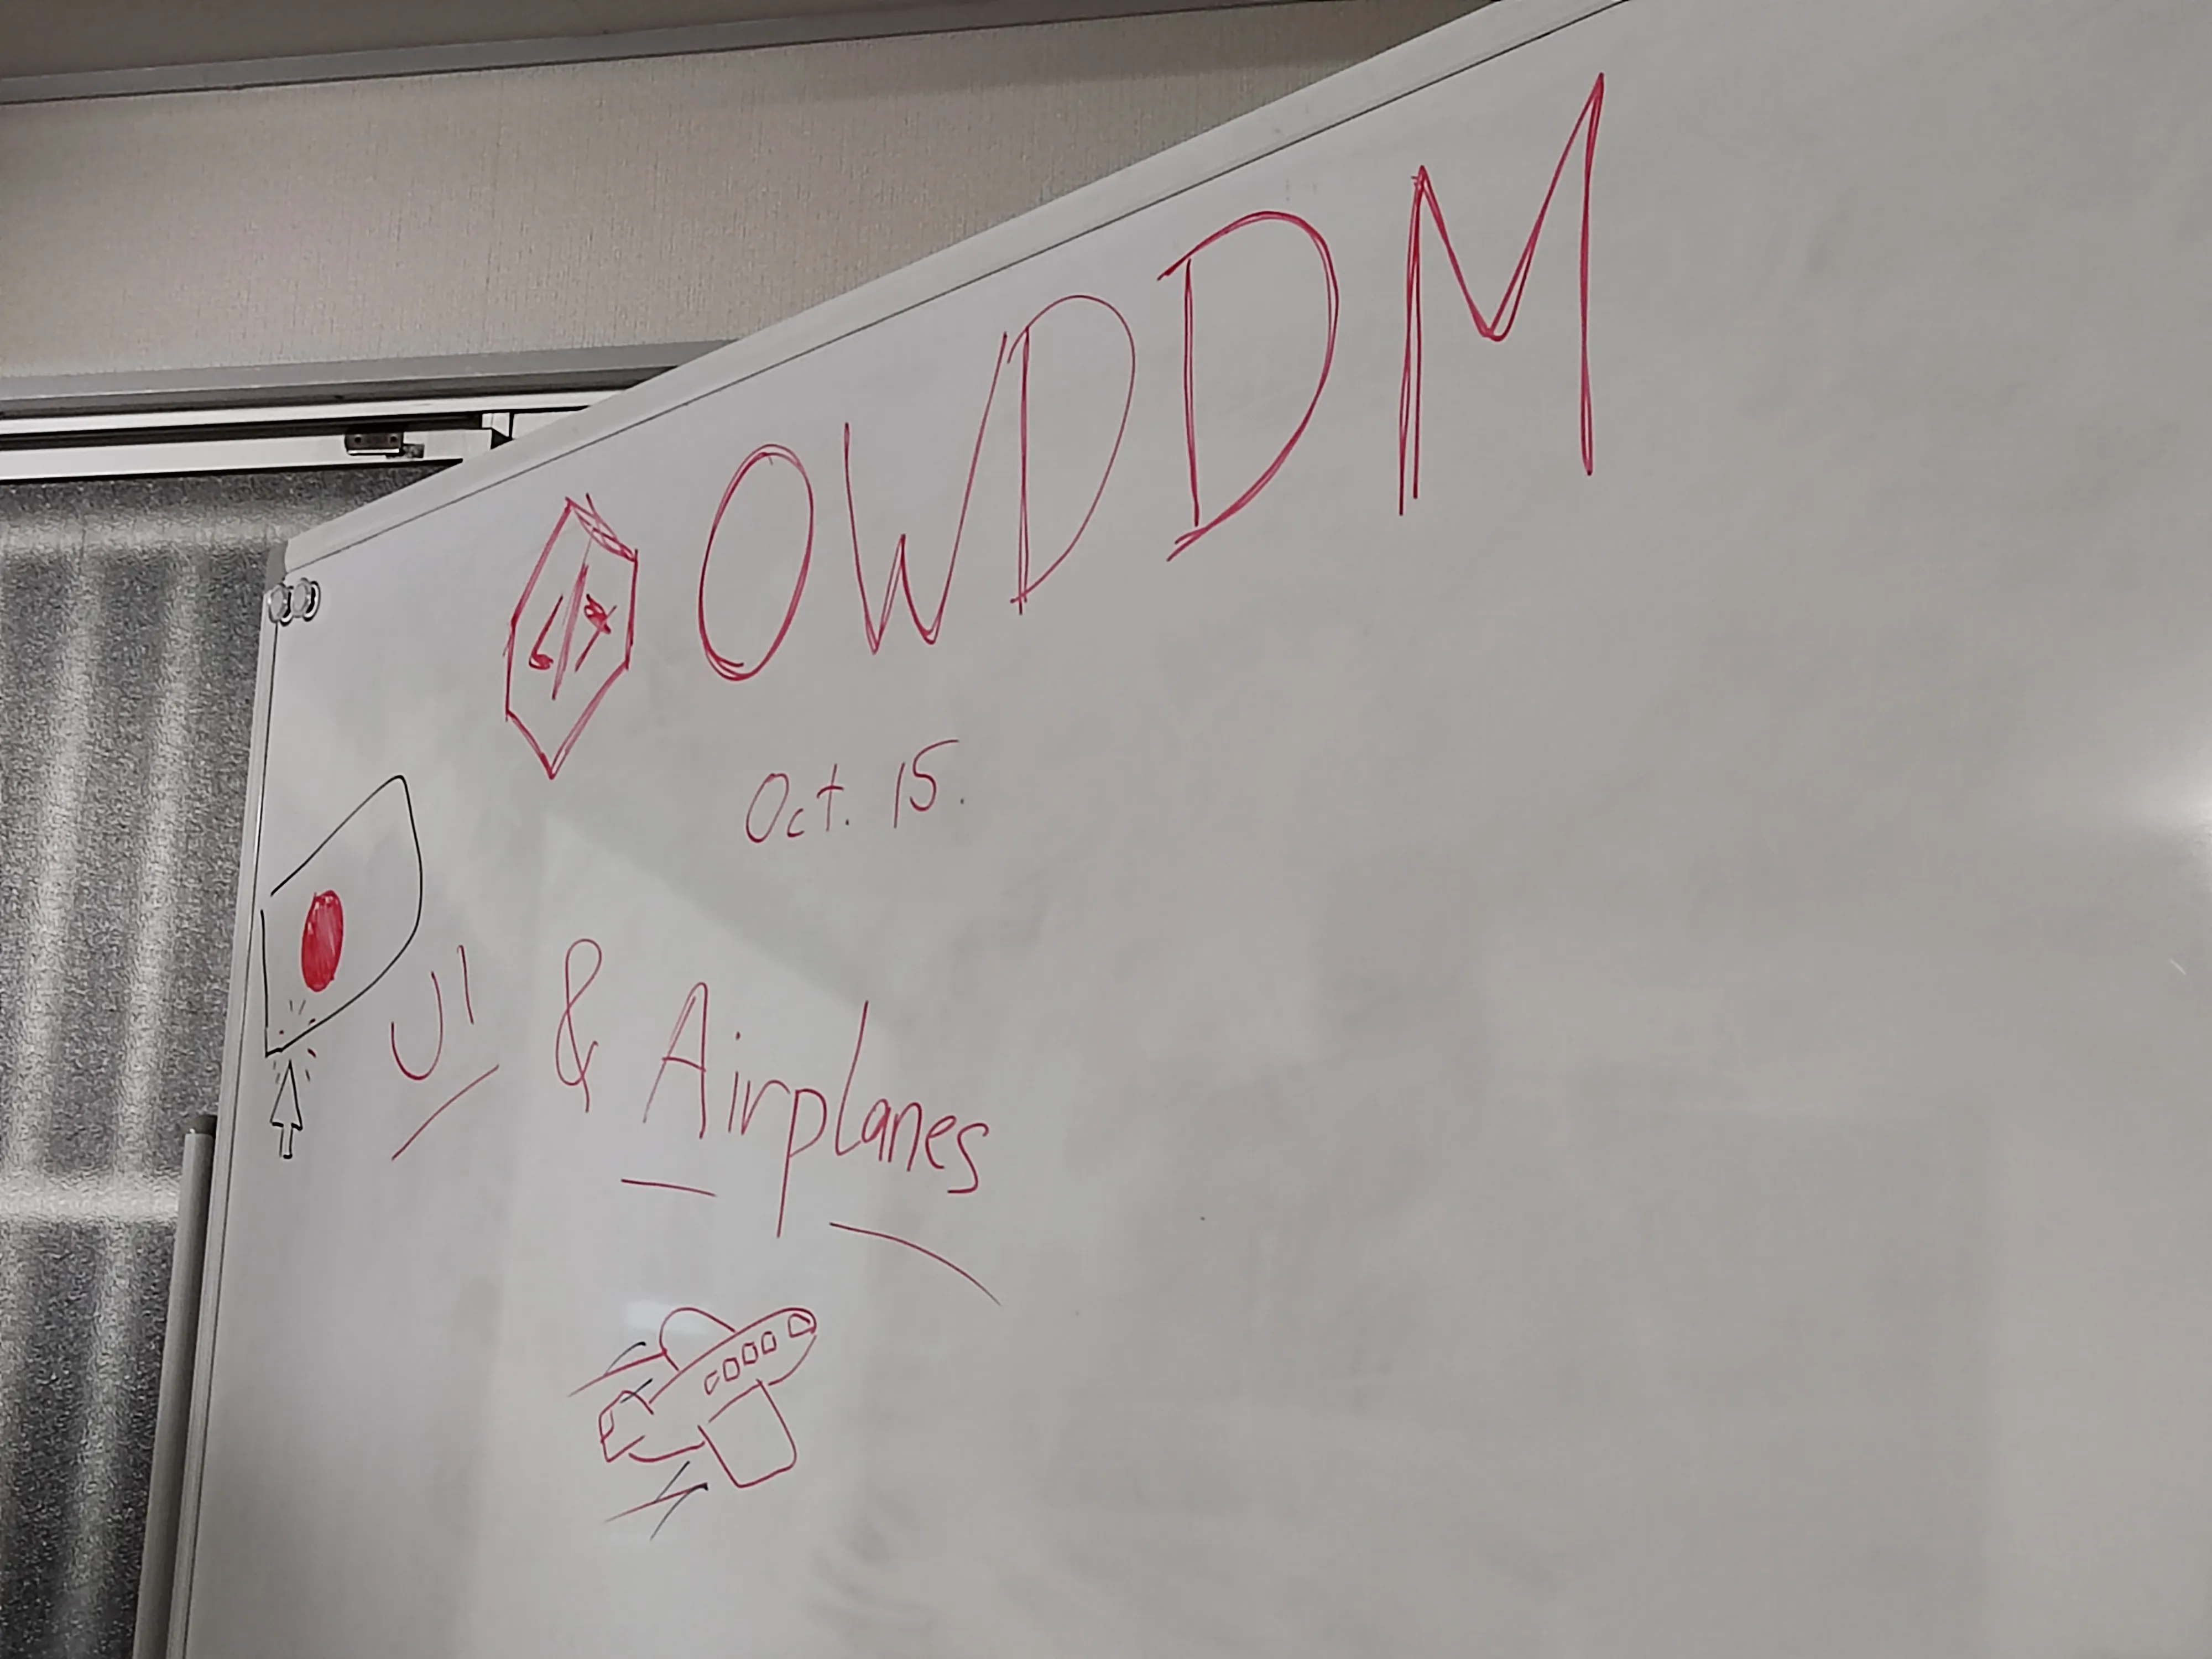 </> OWDDM
Oct. 15.
UI & Airplanes